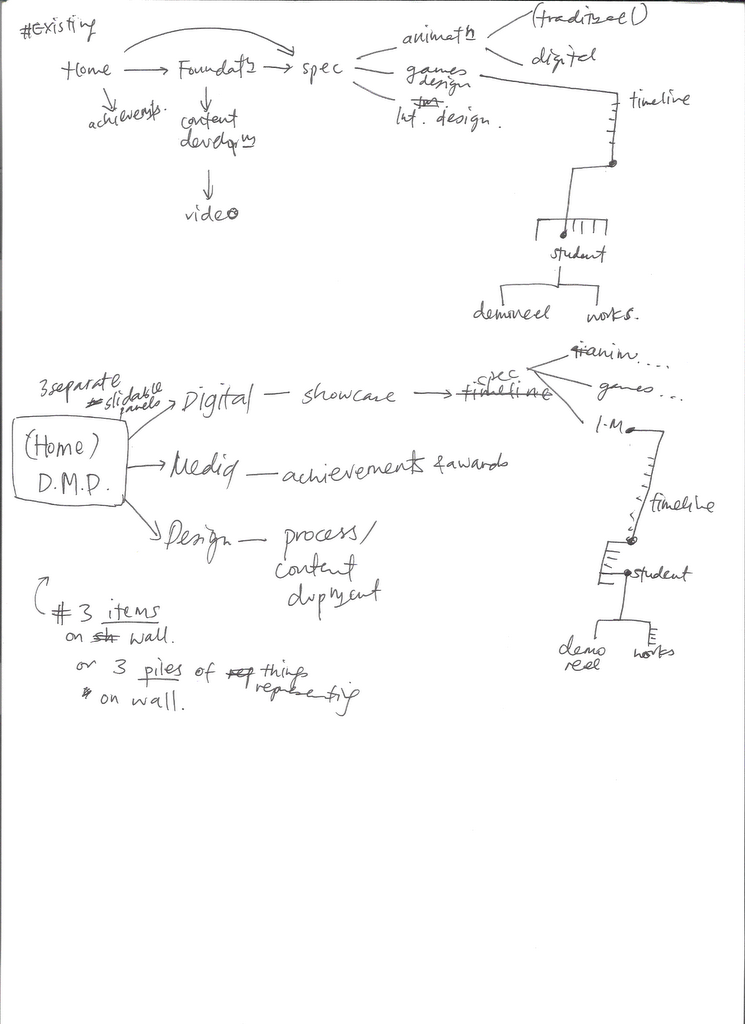 #Existing
Home
Foundat'n
spec
achievemts.
content
develop'g
video
animat'n
games
design
Int. design.
digital
timeline
student
demoreel
works.
3 separate
slidable
panels
(Home)
D.M.D.
Digital — showcase
timeline
spec
anim....
games...
I.M.
timeline
student
demo
reel
works
Media — achievements & awards
Design — process/
content
# 3 items
on wall.
or 3 piles of things
representing
on wall.